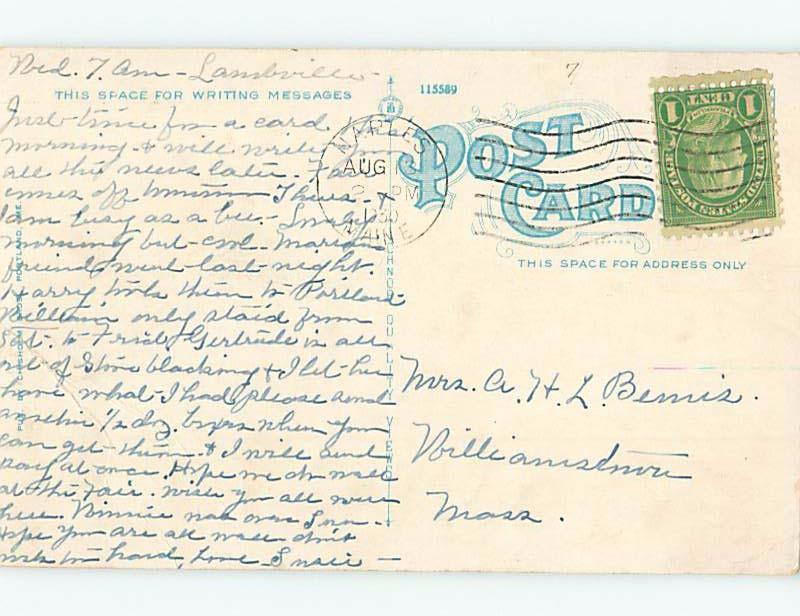 Wed. 7. am - Lambville -
THIS SPACE FOR WRITING MESSAGES
Just time for a card
morning & will write you
all the news later. Fair
comes off Thurs. &
I am busy as a bee. Lovely
morning but cool. Marion
friends went last night.
Harry took them to Portland
William only staid from
Sat. to Frid. Gertrude is all
out of Stove blacking & I let her
have what I had, please send
another 1/2 doz. boxes when you
can get them & I will send
pay at once. Hope we do well
at the Fair. wish you all were
here. Minnie was over Sun.
Hope you are all well don't
work too hard, Love. Susie -
115589
7
POST
CARD
THIS SPACE FOR ADDRESS ONLY
NAPLES
AUG
PM
30
MAINE
1 CENT 1
Mrs. A. H. L. Bemis.
Williamstown
Mass.
PUB. CHISHOLM BROS., PORTLAND, ME.